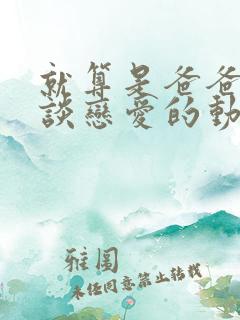 就算是爸爸
談戀愛的動
雅图
未经同意禁止转载